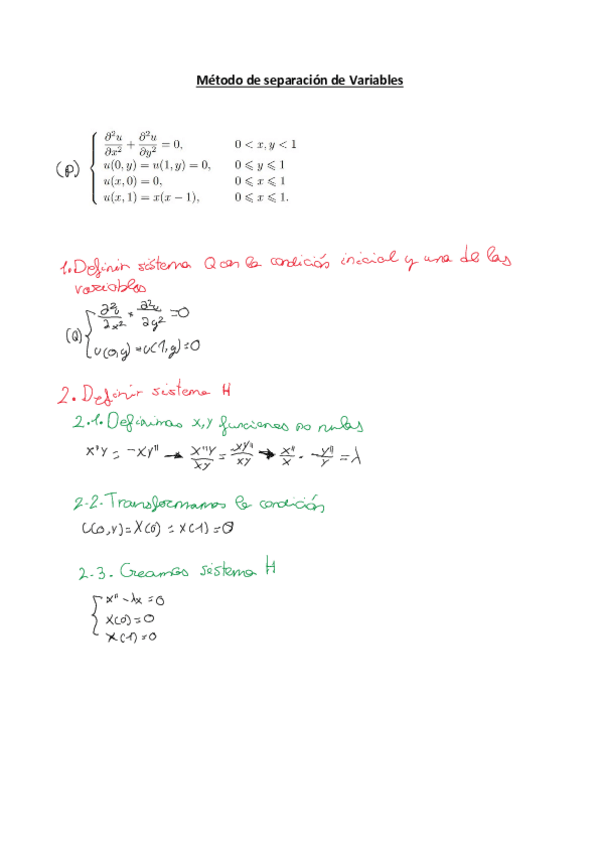 Método de separación de Variables
(P) { ∂²u/∂x² + ∂²u/∂y² = 0, 0 < x, y < 1
u(0, y) = u(1, y) = 0, 0 ⩽ y ⩽ 1
u(x, 0) = 0, 0 ⩽ x ⩽ 1
u(x, 1) = x(x − 1), 0 ⩽ x ⩽ 1.
1. Definir sistema Q con la condición inicial y una de las
variables
(Q) { ∂²u/∂x² + ∂²u/∂y² = 0
u(0,y) = u(1,y) = 0
2. Definir sistema H
2.1. Definimos x, y funciones no nulas
X''Y = -XY'' → X''Y/XY = -XY''/XY → X''/X = -Y''/Y = λ
2.2. Transformamos la condición
U(0,Y) = X(0) = X(1) = 0
2.3. Creamos sistema H
{ X'' - λX = 0
X(0) = 0
X(1) = 0